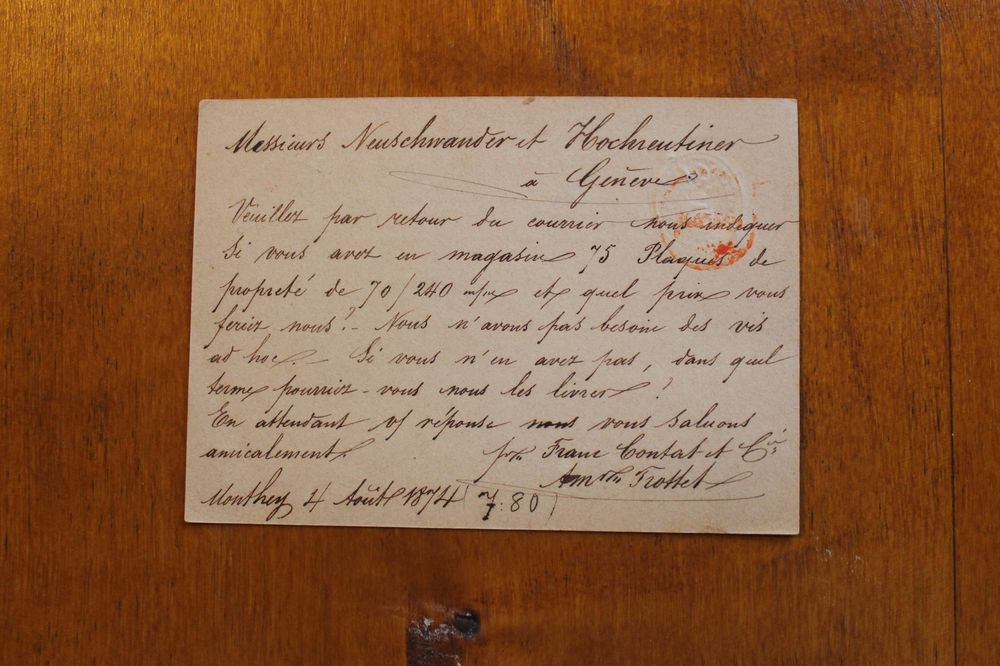 Messieurs Neuschwander et Hochreutiner
à Genève
Veuillez par retour du courrier nous indiquer
si vous avez en magasin 75 Plaques de
propreté de 70/240 m/m et quel prix vous
feriez nous? - Nous n'avons pas besoin des vis
ad hoc. Si vous n'en avez pas, dans quel
terme pourriez-vous nous les livrer?
En attendant v/ réponse nous vous saluons
amicalement.
Franc Contat et Cie
Trottet
Monthey 4 Août 1874 (7.80)